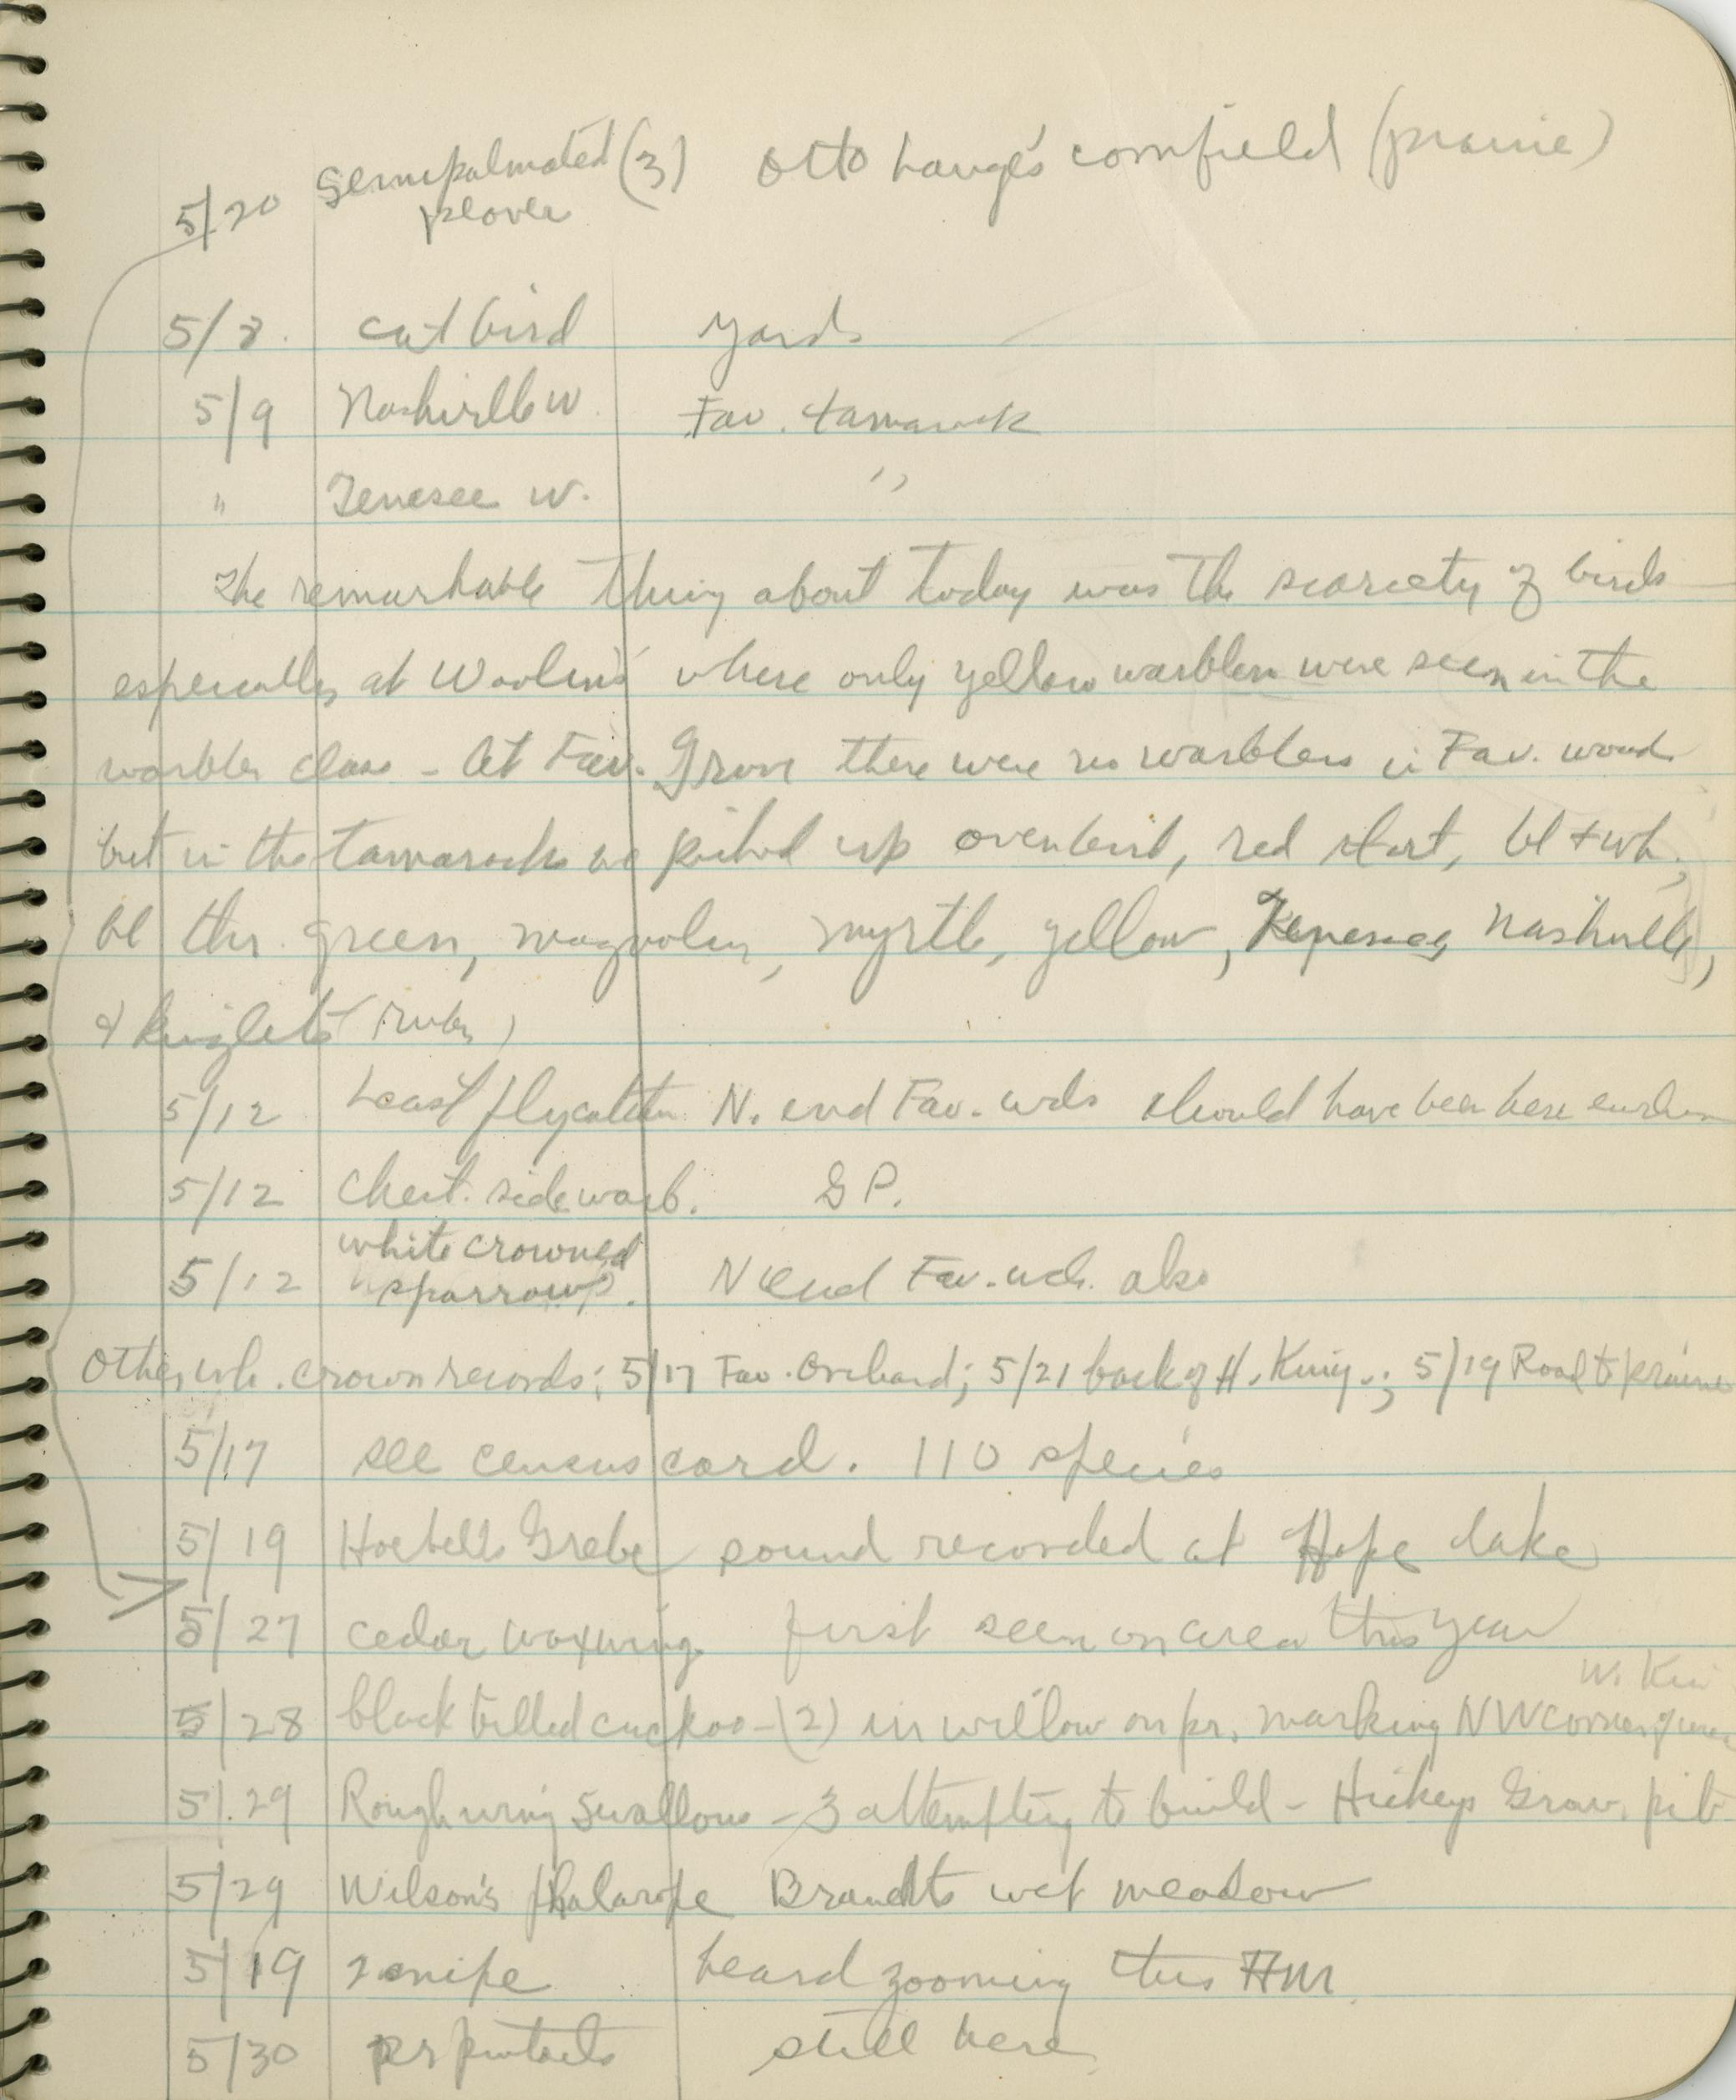 5/20 Semipalmated (3) Otto Lange's cornfield (prairie)
plover
5/8 cat bird yard
5/9 Nashville W. Fav. tamarack
" Tenesee W. "
The remarkable thing about today was the scarciety of birds
especially at where only yellow warblers were seen in the
warbler class - At Fav. Grove there were no warblers in Fav. woods
but in the tamaracks we picked up ovenbird, red start, bl + wh,
bl thr. green, magnolia, myrtle, yellow, Tenesee, Nashville,
& kinglets (ruby)
5/12 Least flycatcher N. end Fav. wds should have been here earlier
5/12 Chest. side warb. G P.
5/12 white crowned
sparrows. N end Fav. wds. also
Other wh. crown records: 5/17 Fav. Orchard; 5/21 back of H. King.; 5/19 Road to prairie
5/17 see census card. 110 species
5/19 Hoebells Grebe sound recorded at Hope Lake
5/27 cedar waxwing first seen on area this year
W. Kin
5/28 black billed cuckoo - (2) in willow on pr. marking NW corner of
5/29 Rough wing Swallows - 3 attempting to build - Hickeys Grav. pit
5/29 Wilson's phalarope Brandts wet meadow
5/19 2 snipe heard zooming this
5/30 still here